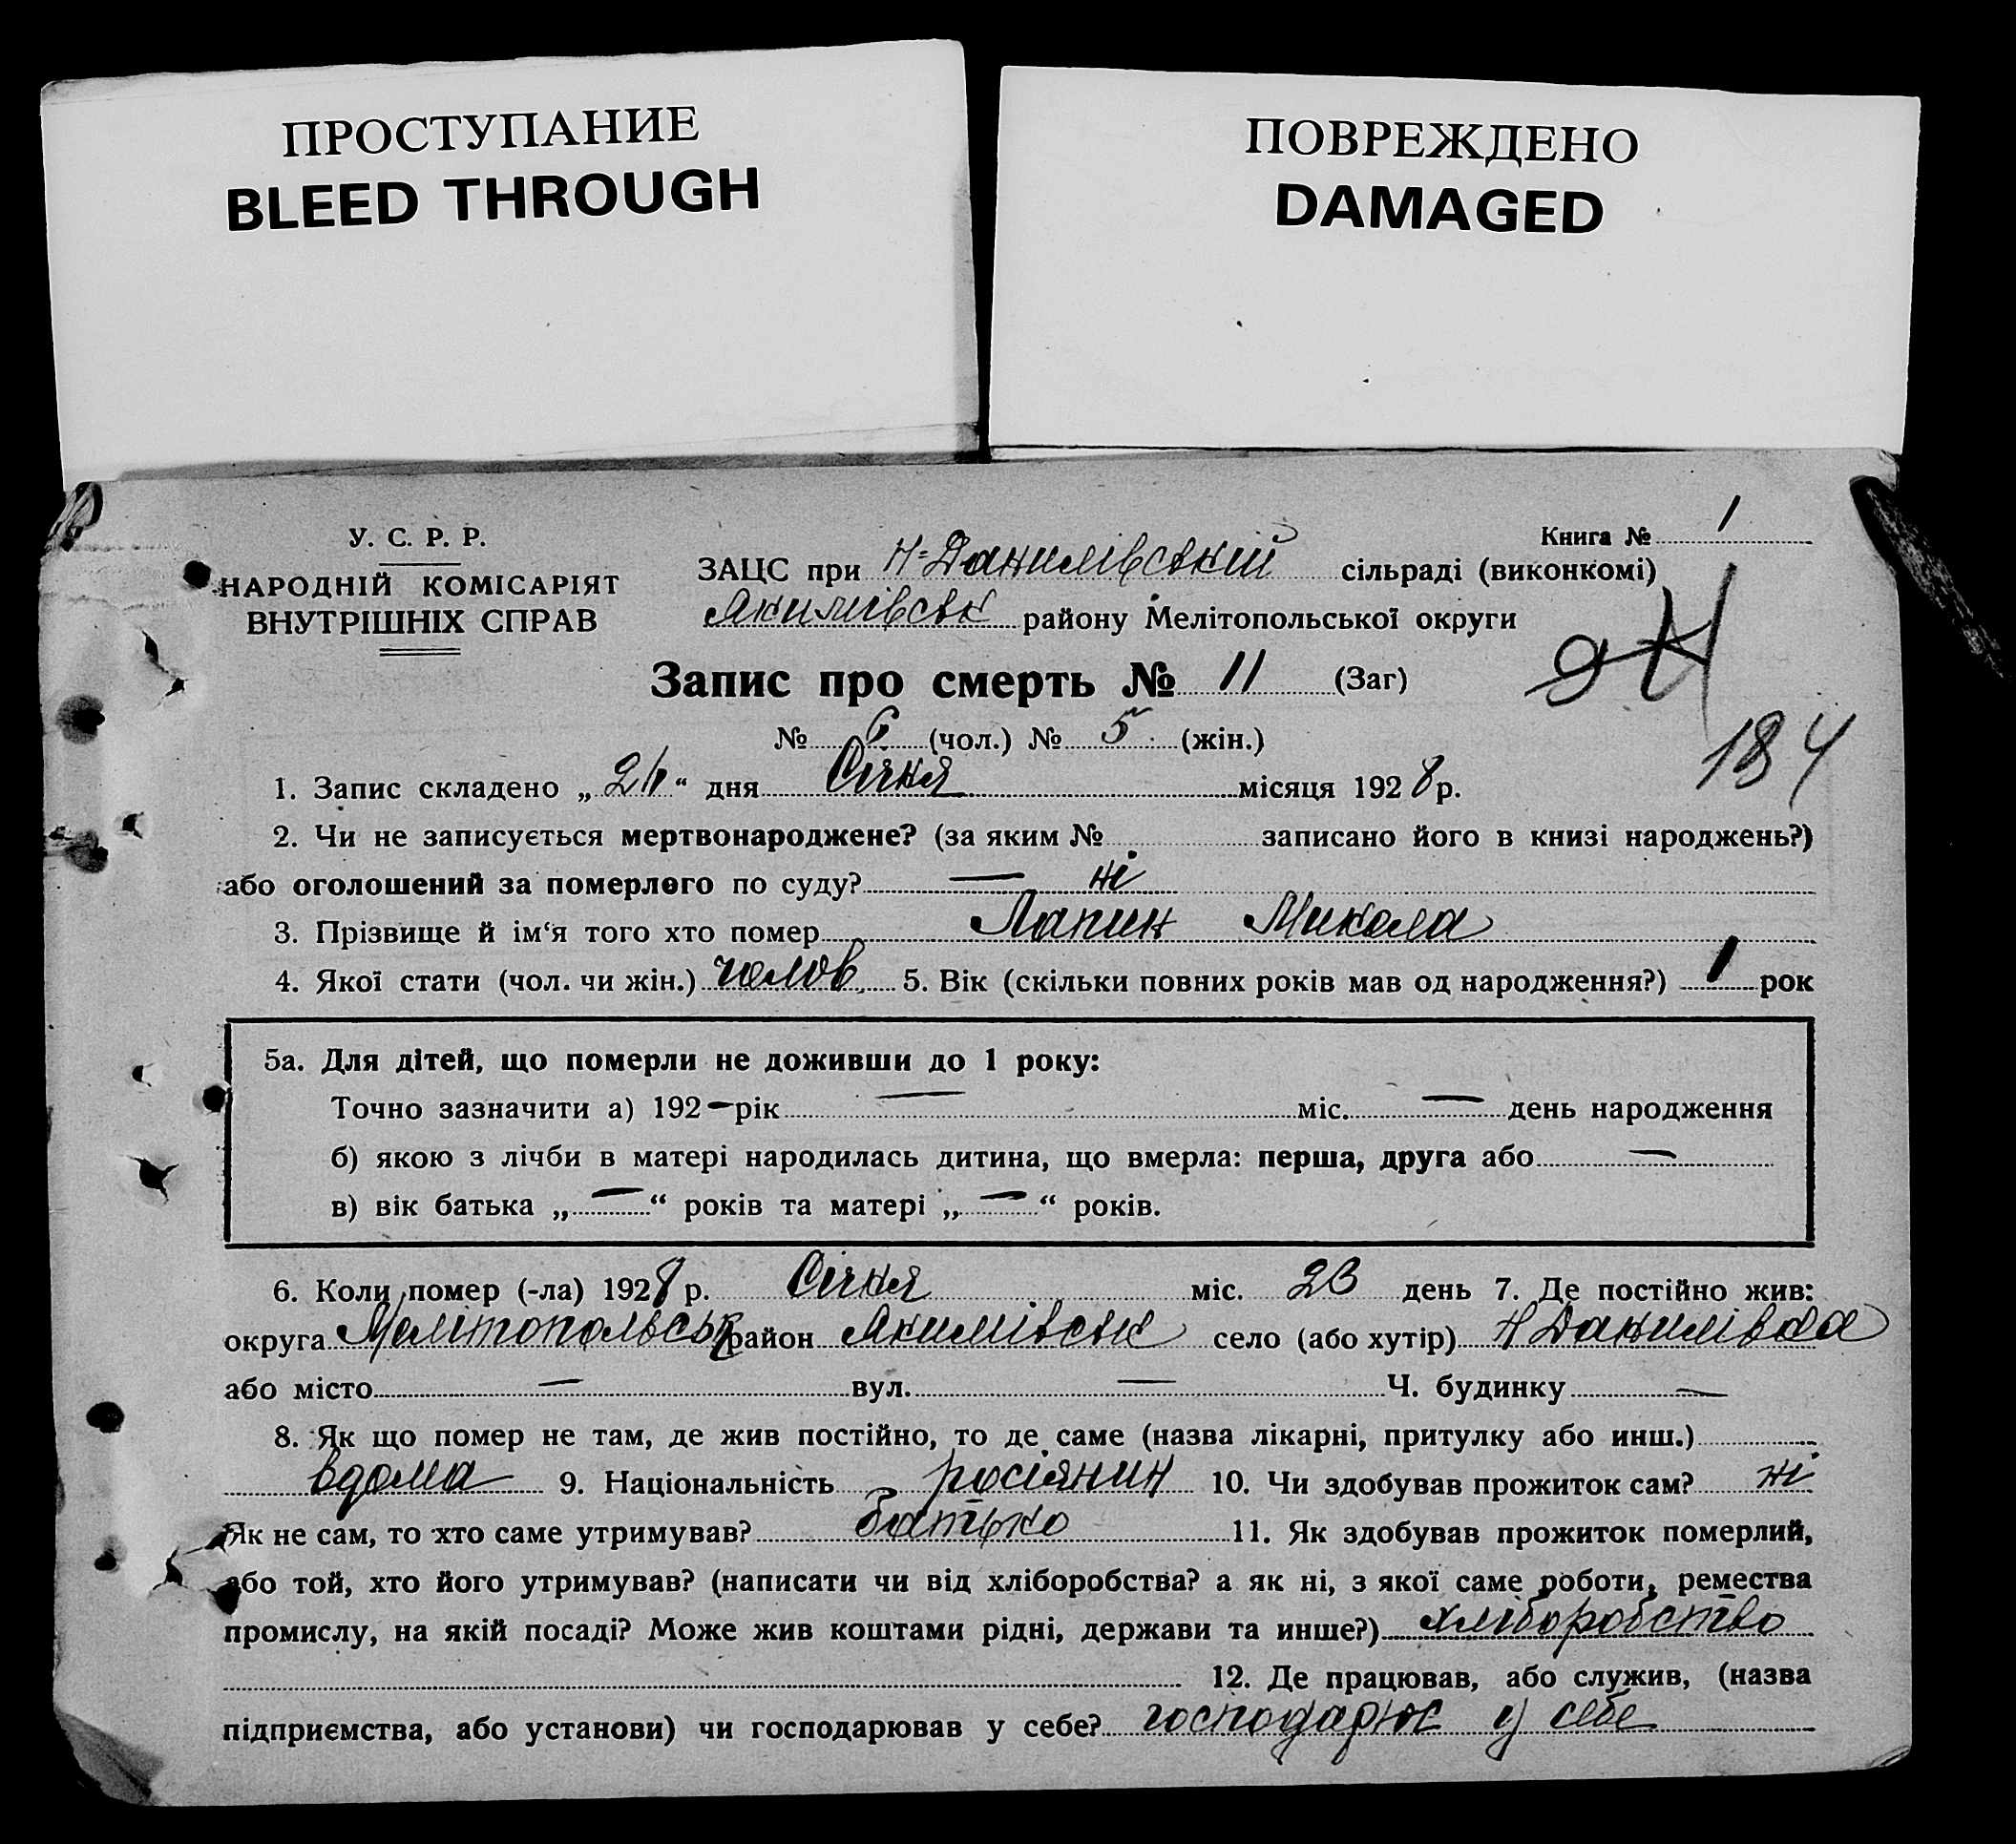 ПРОСТУПАНИЕ
BLEED THROUGH
ПОВРЕЖДЕНО
DAMAGED
У. С. Р. Р.
НАРОДНІЙ КОМІСАРІЯТ
ВНУТРІШНІХ СПРАВ
Книга № 1
ЗАЦС при Н-Данилівській сільраді (виконкомі)
Якимівськ району Мелітопольської округи
Запис про смерть № 11 (Заг)
№ 6 (чол.) № 5 (жін.)
184
1. Запис складено „ “ дня Січня місяця 1928 р.
2. Чи не записується мертвонароджене? (за яким № записано його в книзі народжень?)
або оголошений за померлого по суду? — ні
3. Прізвище й ім‘я того хто помер Лапин Микола
4. Якої стати (чол. чи жін.) чолов. 5. Вік (скільки повних років мав од народження?) 1 рок
5а. Для дітей, що померли не доживши до 1 року:
Точно зазначити а) 192— рік — міс. — день народження
б) якою з лічби в матері народилась дитина, що вмерла: перша, друга або —
в) вік батька „—“ років та матері „—“ років.
6. Коли помер (-ла) 1928 р. Січня міс. 23 день 7. Де постійно жив:
округа Мелітопольськ район Якимівськ село (або хутір) Н Данилівка
або місто — вул. — Ч. будинку —
8. Як що помер не там, де жив постійно, то де саме (назва лікарні, притулку або инш.)
вдома 9. Національність росіянин 10. Чи здобував прожиток сам? ні
Як не сам, то хто саме утримував? батько 11. Як здобував прожиток померлий,
або той, хто його утримував? (написати чи від хліборобства? а як ні, з якої саме роботи, ремества
промислу, на якій посаді? Може жив коштами рідні, держави та инше?) хліборобство
12. Де працював, або служив, (назва
підприємства, або установи) чи господарював у себе? господарює у себе